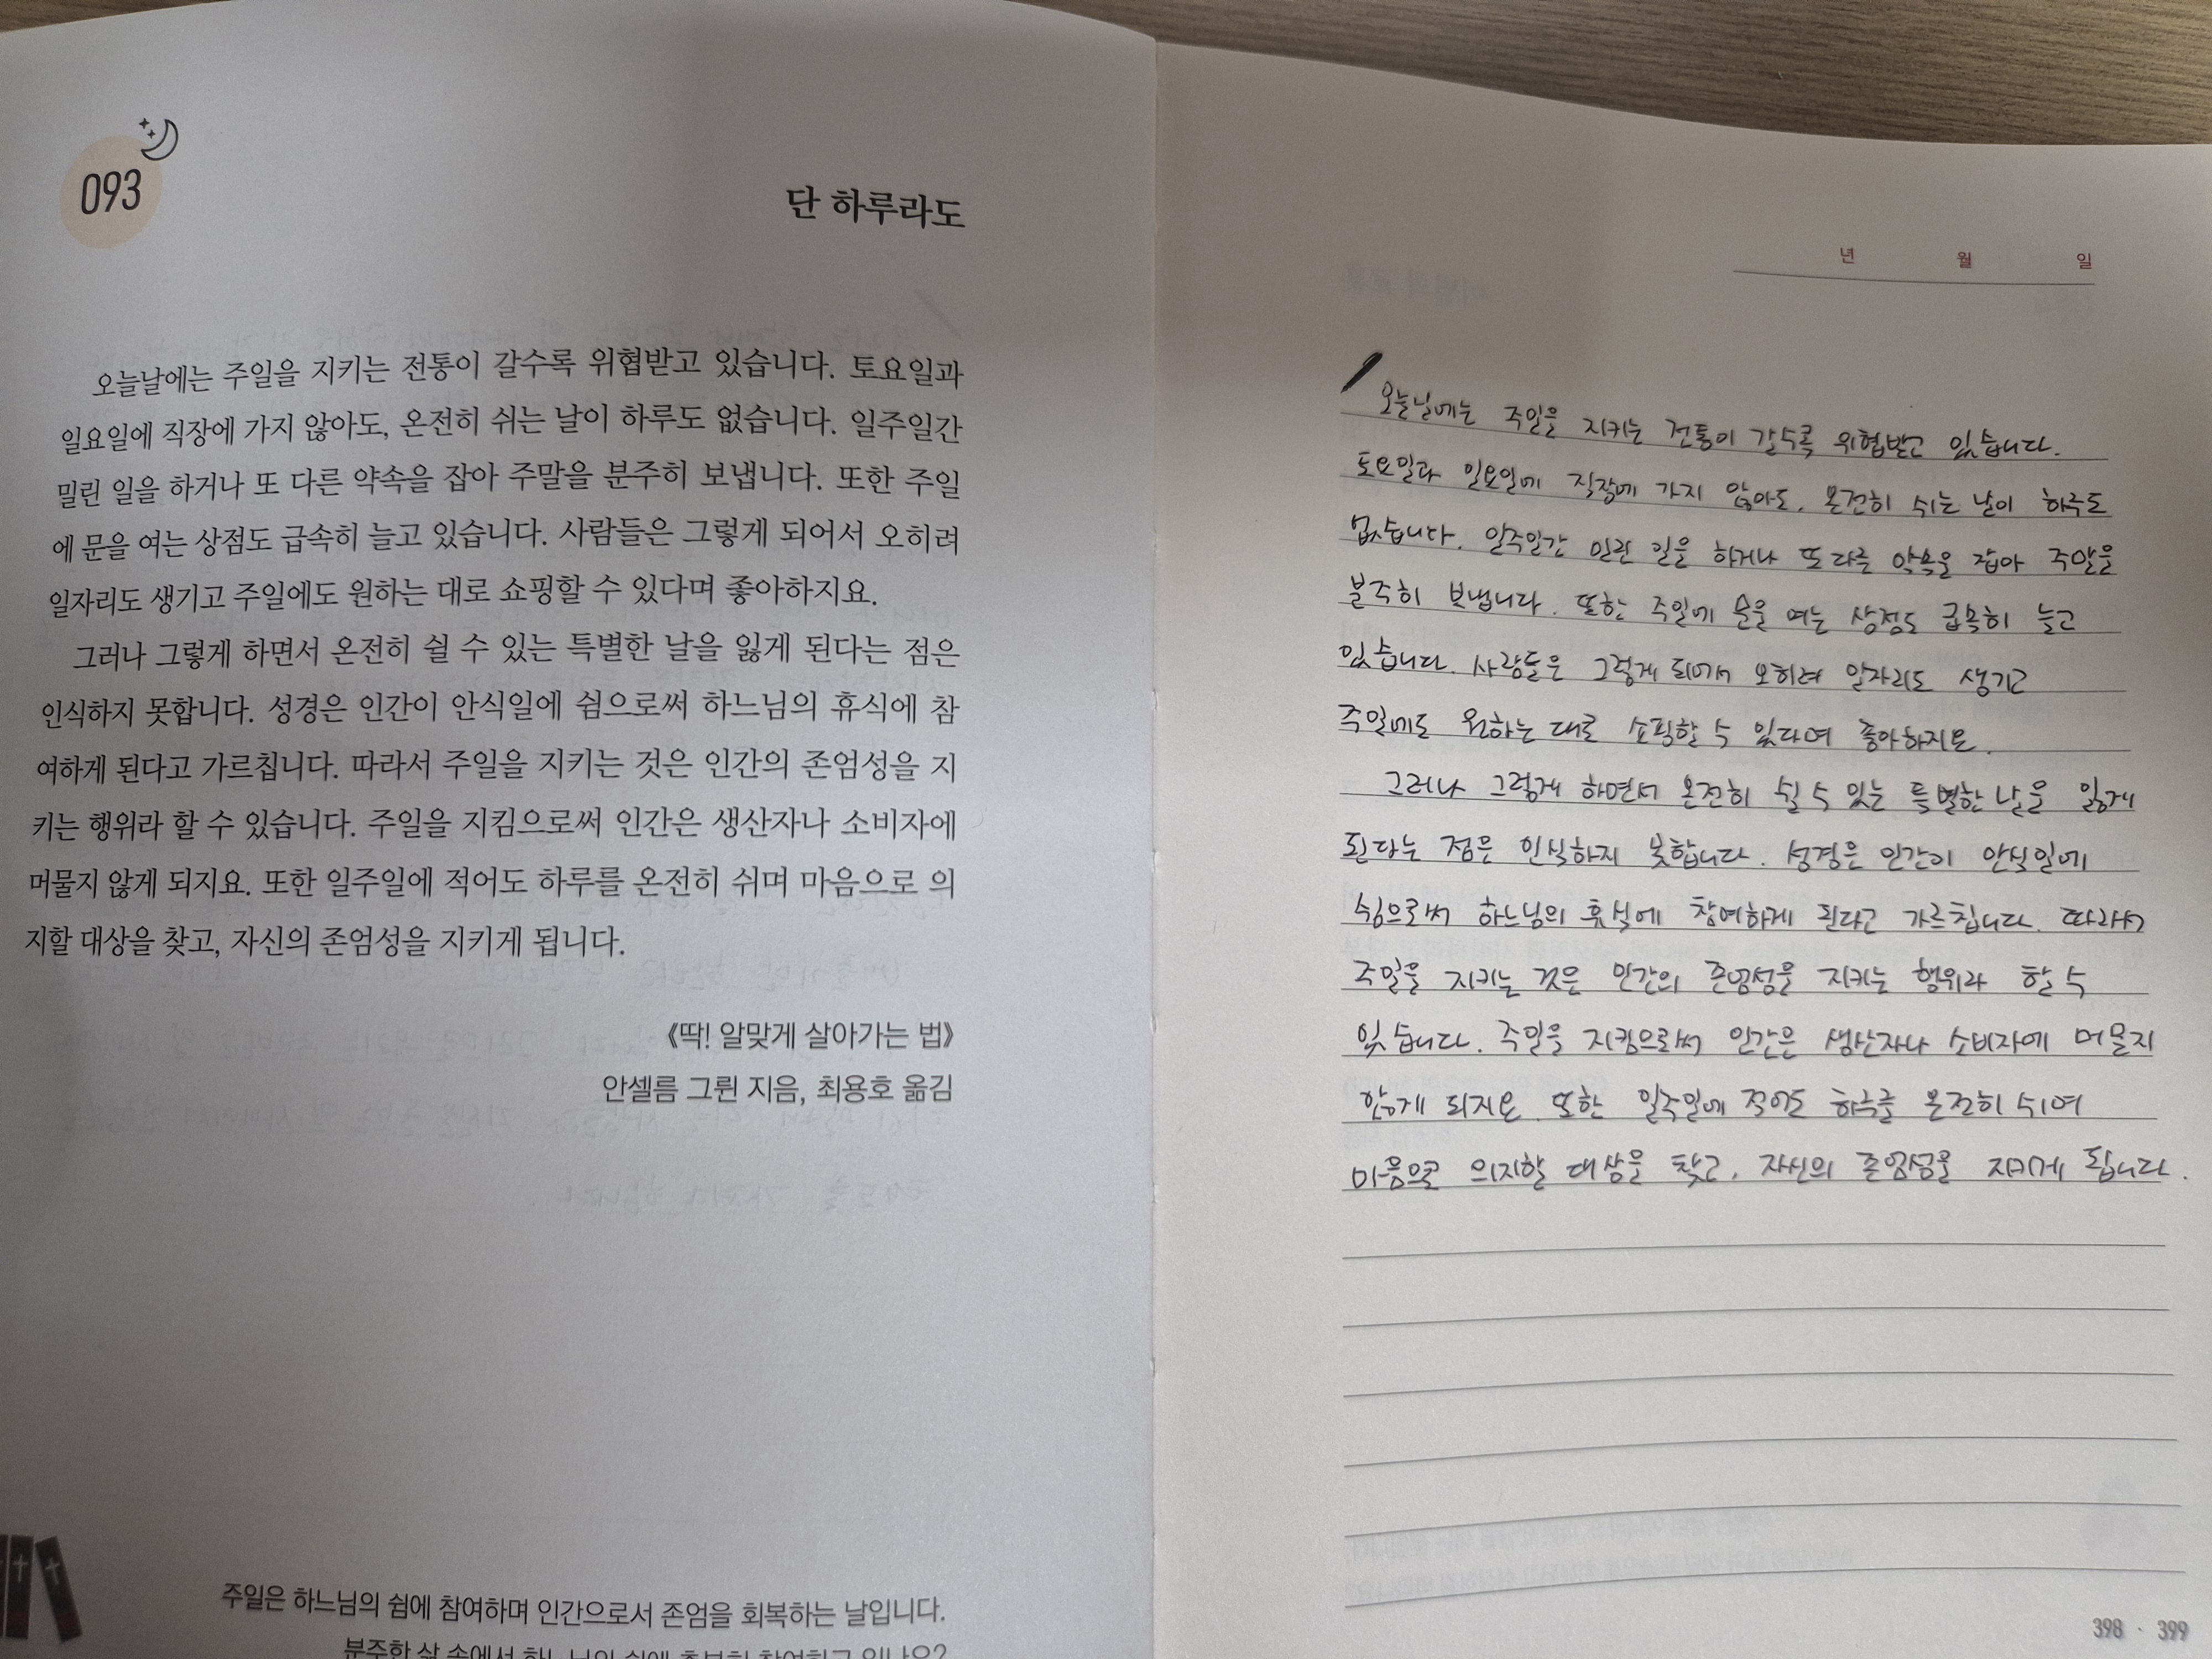 093
단 하루라도
오늘날에는 주일을 지키는 전통이 갈수록 위협받고 있습니다. 토요일과
일요일에 직장에 가지 않아도, 온전히 쉬는 날이 하루도 없습니다. 일주일간
밀린 일을 하거나 또 다른 약속을 잡아 주말을 분주히 보냅니다. 또한 주일
에 문을 여는 상점도 급속히 늘고 있습니다. 사람들은 그렇게 되어서 오히려
일자리도 생기고 주일에도 원하는 대로 쇼핑할 수 있다며 좋아하지요.
그러나 그렇게 하면서 온전히 쉴 수 있는 특별한 날을 잃게 된다는 점은
인식하지 못합니다. 성경은 인간이 안식일에 쉼으로써 하느님의 휴식에 참
여하게 된다고 가르칩니다. 따라서 주일을 지키는 것은 인간의 존엄성을 지
키는 행위라 할 수 있습니다. 주일을 지킴으로써 인간은 생산자나 소비자에
머물지 않게 되지요. 또한 일주일에 적어도 하루를 온전히 쉬며 마음으로 의
지할 대상을 찾고, 자신의 존엄성을 지키게 됩니다.
《딱! 알맞게 살아가는 법》
안셀름 그륀 지음, 최용호 옮김
주일은 하느님의 쉼에 참여하며 인간으로서 존엄을 회복하는 날입니다.
분주한 삶 속에서 하느님의 쉼에 충분히 참여하고 있나요?
년 월 일
오늘날에는 주일을 지키는 전통이 갈수록 위협받고 있습니다.
토요일과 일요일에 직장에 가지 않아도, 온전히 쉬는 날이 하루도
없습니다. 일주일간 밀린 일을 하거나 또 다른 약속을 잡아 주말을
분주히 보냅니다. 또한 주일에 문을 여는 상점도 급속히 늘고
있습니다. 사람들은 그렇게 되어서 오히려 일자리도 생기고
주일에도 원하는 대로 쇼핑할 수 있다며 좋아하지요.
그러나 그렇게 하면서 온전히 쉴 수 있는 특별한 날을 잃게
된다는 점은 인식하지 못합니다. 성경은 인간이 안식일에
쉼으로써 하느님의 휴식에 참여하게 된다고 가르칩니다. 따라서
주일을 지키는 것은 인간의 존엄성을 지키는 행위라 할 수
있습니다. 주일을 지킴으로써 인간은 생산자나 소비자에 머물지
않게 되지요. 또한 일주일에 적어도 하루를 온전히 쉬며
마음으로 의지할 대상을 찾고, 자신의 존엄성을 지키게 됩니다.
398 · 399